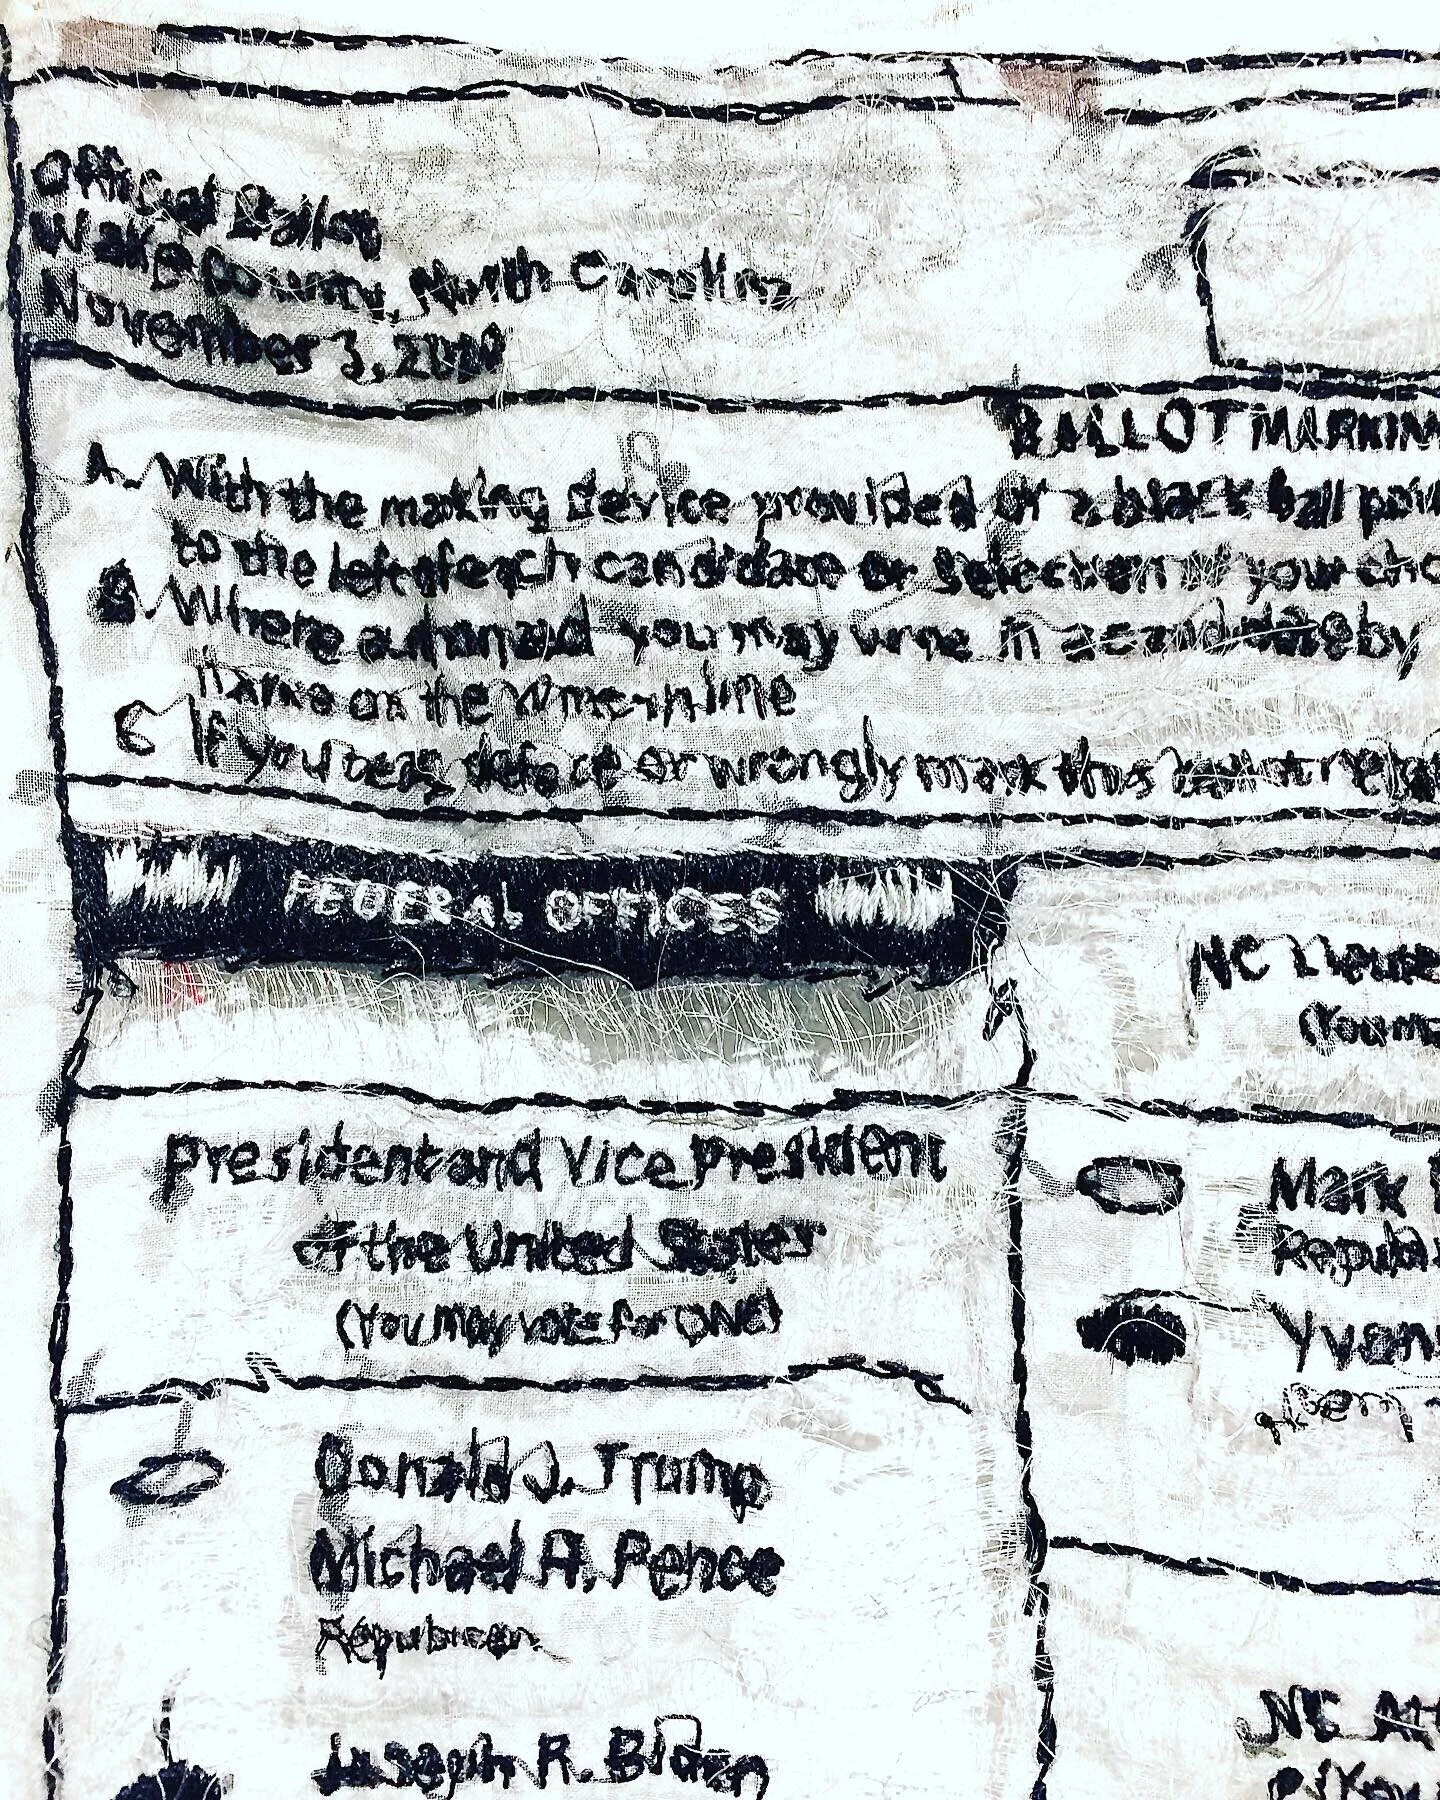 Official Ballot
Wake County, North Carolina
November 3, 2020
BALLOT MARKIN
A. With the making device provided or a black ball poin
to the left of each candidate or selection of your cho
B. Where authorized you may write in a candidate by
name on the write-in line
C If you tear, deface or wrongly mark this ballot, re
FEDERAL OFFICES
President and Vice President
of the United States
(You may vote for ONE)
Donald J. Trump
Michael A. Pence
Republican
Joseph R. Biden
NC Lieute
(You ma
Mark
Republi
Yvon
NC Att